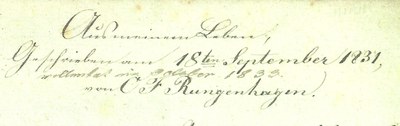 Aus meinem Leben,
Geschrieben am 18ten September 1831,
vollendet im October 1833.
von C F Rungenhagen.